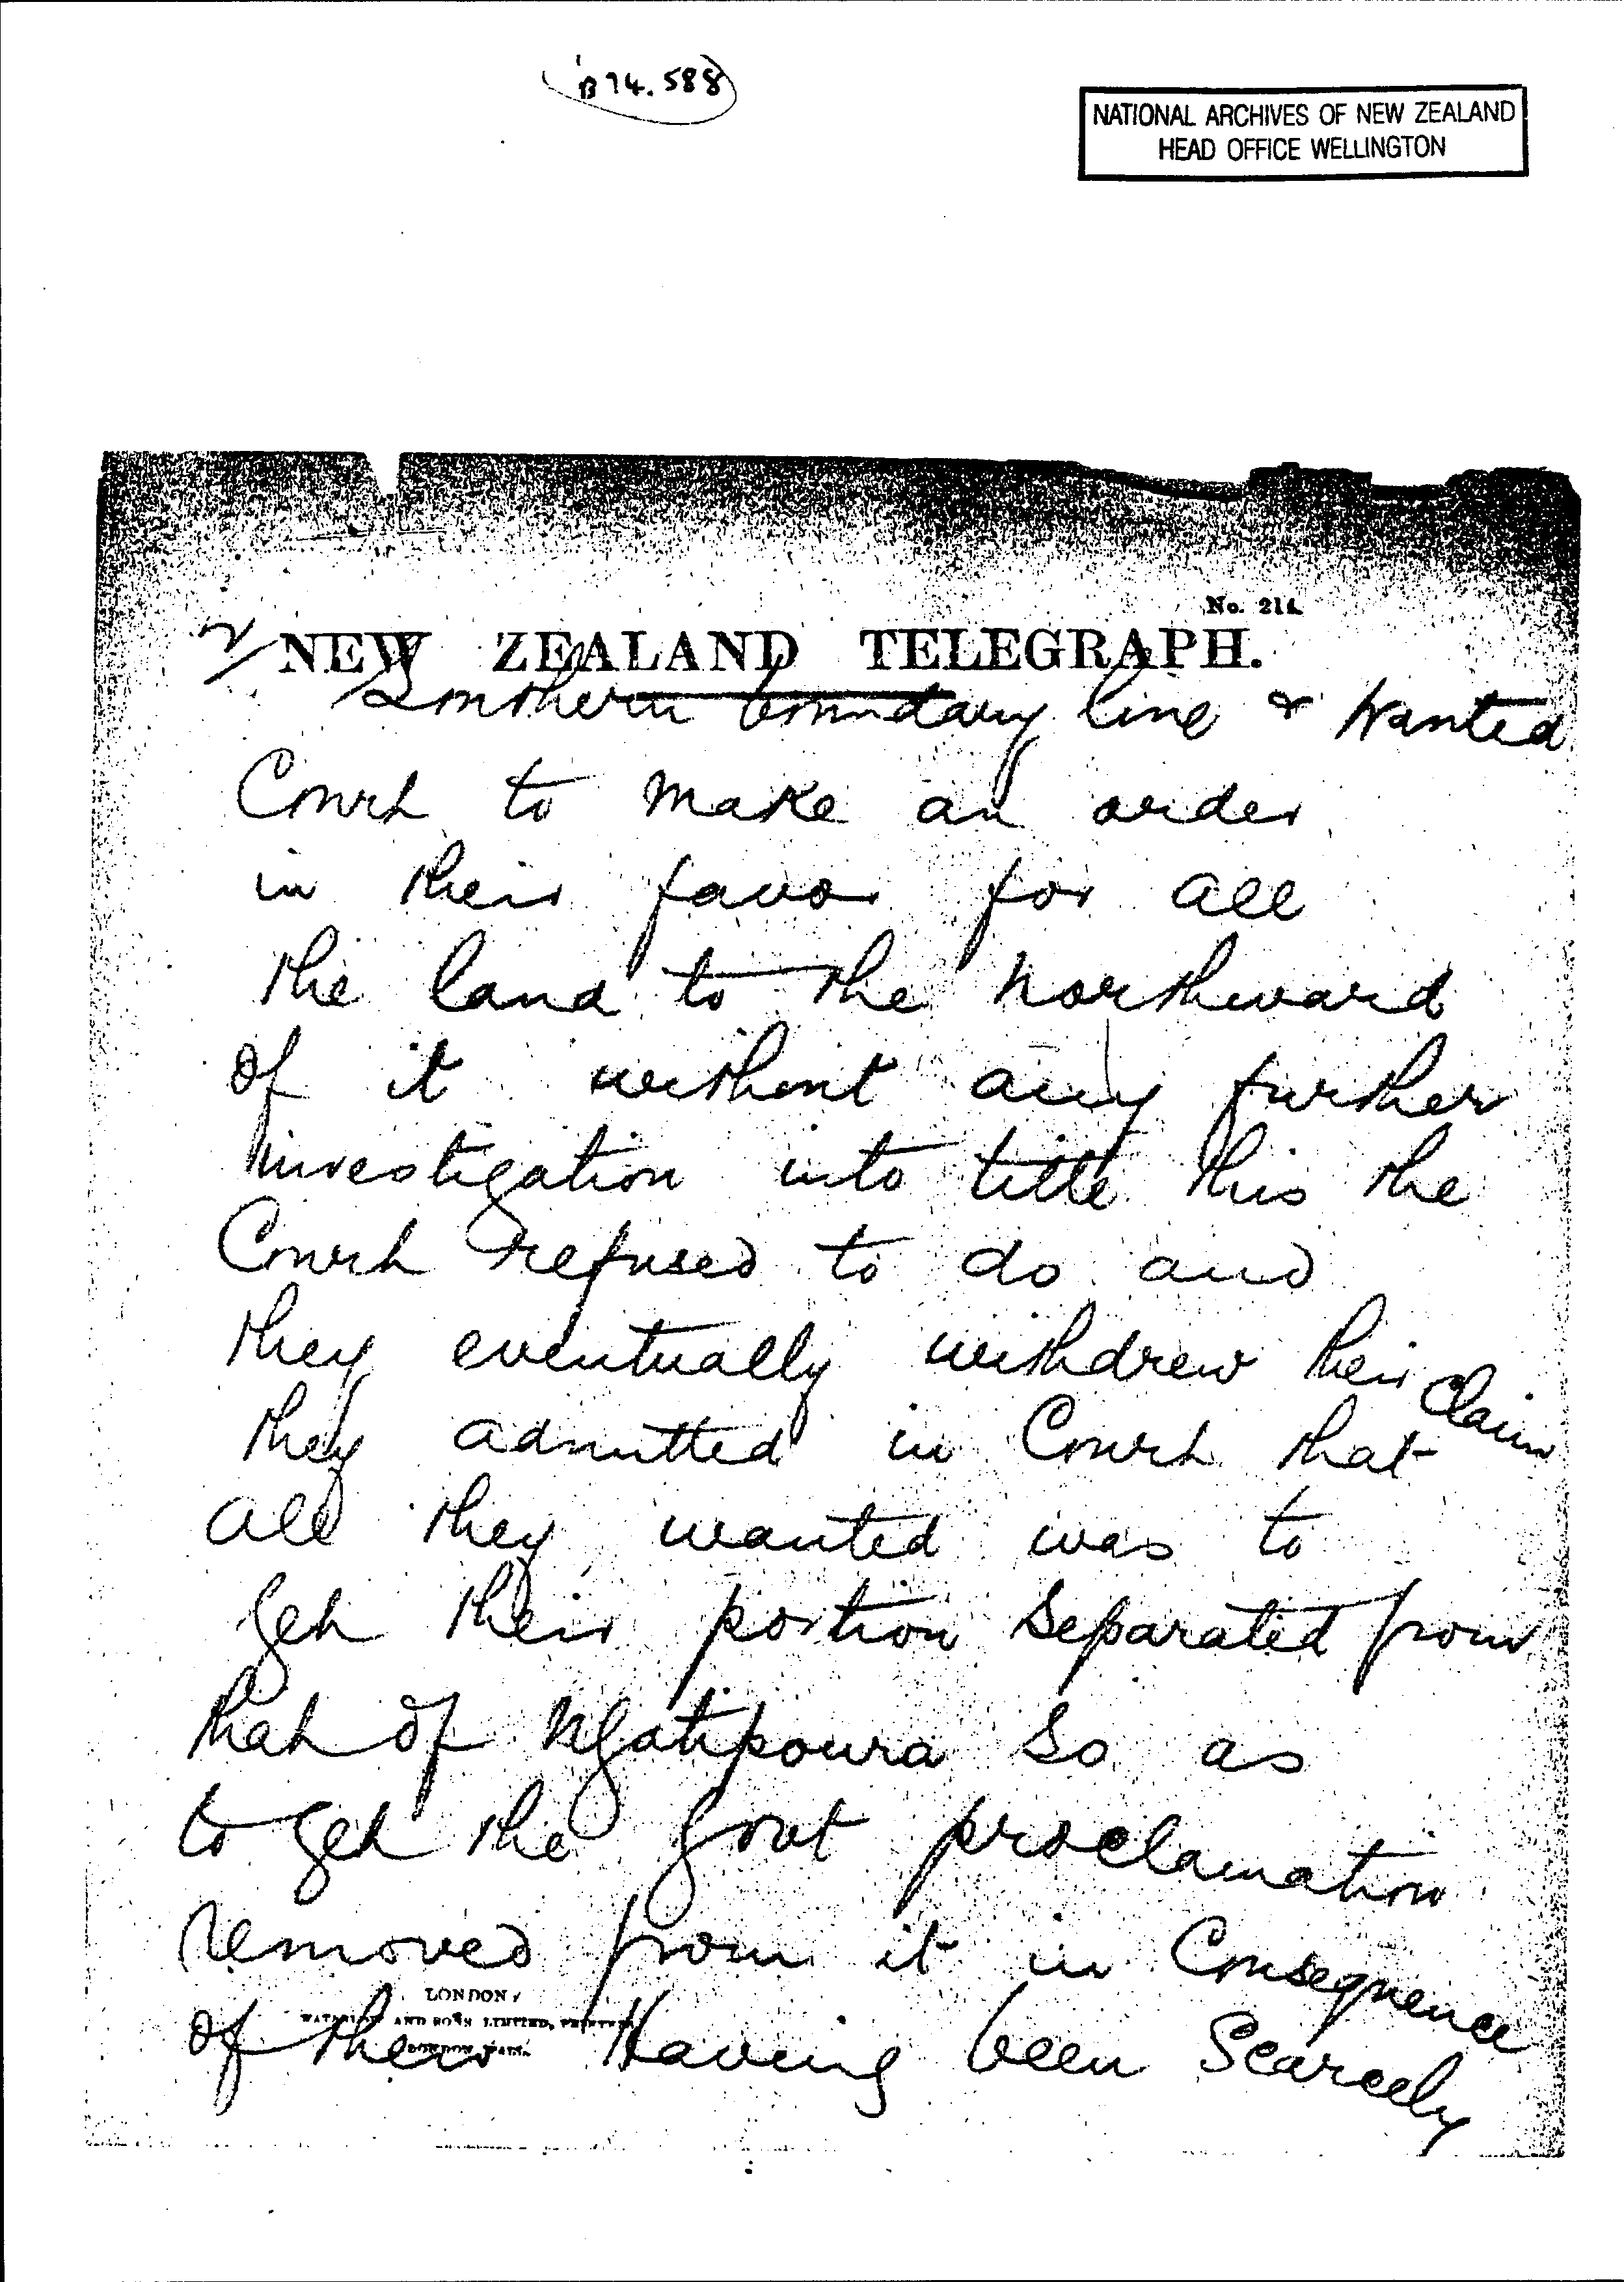 B74.588
NATIONAL ARCHIVES OF NEW ZEALAND
HEAD OFFICE WELLINGTON
No. 214
2/ NEW ZEALAND TELEGRAPH.
Southern boundary line & Wanted
Court to make an order
in their favor for all
the land to the Northward
of it without any further
investigation into title this the
Court refused to do and
they eventually withdrew their Claim
they admitted in Court that
all they wanted was to
get their portion Separated from
that of Ngatipoura So as
to get the Govt proclamation
removed from it in Consequence
LONDON
AND SONS LIMITED,
of their Having been Scarcely